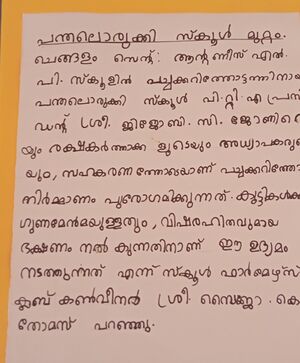 പന്തലൊരുക്കി സ്കൂൾ മുറ്റം.
ചെങ്ങളം സെന്റ്: ആന്റണീസ് എൽ.
പി. സ്കൂളിൽ പച്ചക്കറിത്തോട്ടത്തിനായ
പന്തലൊരുക്കി സ്കൂൾ പി.റ്റി.എ പ്രസി
ഡന്റ് ശ്രീ. ജിജോബി. സി. ജോണിന്റെ
യും രക്ഷകർത്താക്ക ളുടെയും അധ്യാപകരുടെ
യും, സഹകരണ ത്തോടെയാണ് പച്ചക്കറിത്തോ
നിർമ്മാണം പുരോഗമിക്കുന്നത്. കുട്ടികൾക്ക
ഗുണമേൻമയുള്ളതും, വിഷരഹിതവുമായ
ഭക്ഷണം നൽ കുന്നതിനാണ് ഈ ഉദ്യമം
നടത്തുന്നത് എന്ന് സ്കൂൾ ഫാർമേഴ്സ്
ക്ലബ് കൺവീനർ ശ്രീ. സൈജ്ജു. കെ
തോമസ് പറഞ്ഞു.